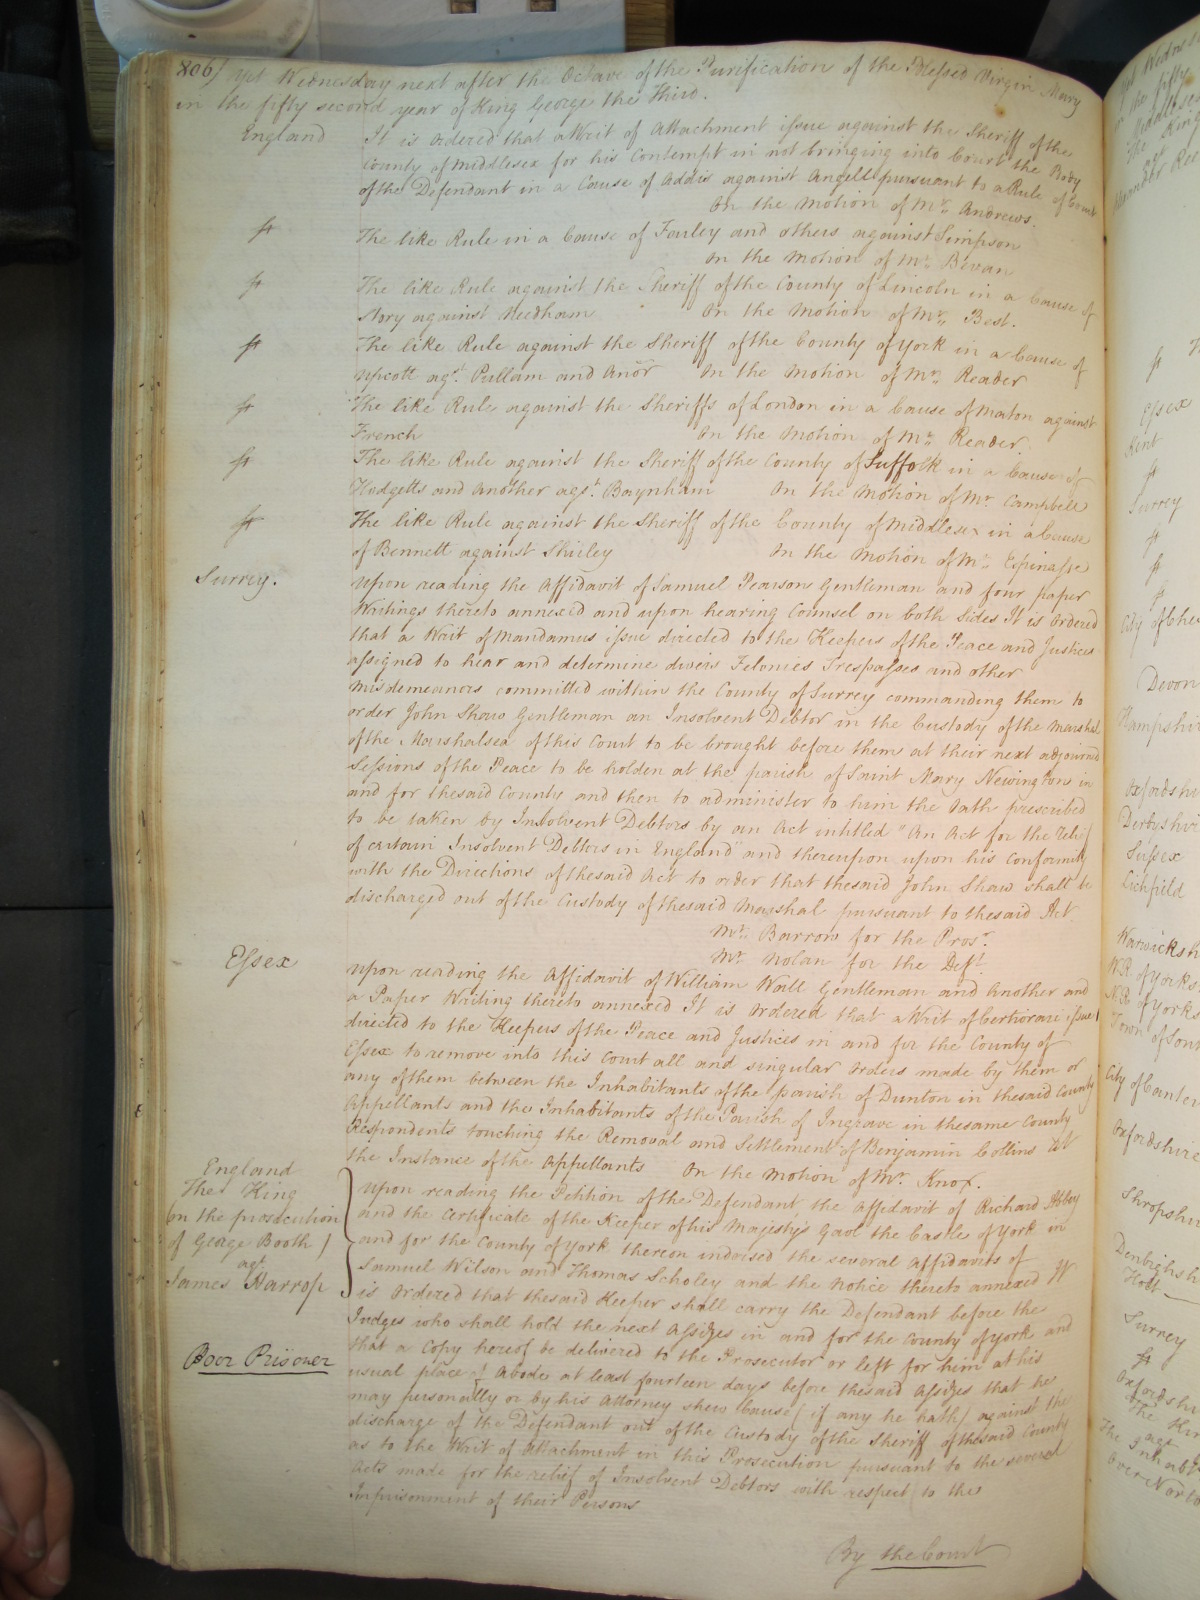 806/ Yet Wednesday next after the Octave of the Purification of the Blessed Virgin Mary
in the fifty second year of King George the Third.
England It is Ordered that a Writ of Attachment issue against the Sheriff of the
County of Middlesex for his Contempt in not bringing into Court the Body
of the Defendant in a Cause of Addis against Angell pursuant to a Rule of Court
On the Motion of Mr. Andrews.
The like Rule in a Cause of Farley and others against Simpson
On the Motion of Mr. Bevan
The like Rule against the Sheriff of the County of Lincoln in a Cause of
Story against Needham On the Motion of Mr. Best.
The like Rule against the Sheriff of the County of York in a Cause of
Upcott agt. Pullam and Anor On the Motion of Mr. Reader
The like Rule against the Sheriffs of London in a Cause of Maton against
French On the Motion of Mr. Reader.
The like Rule against the Sheriff of the County of Suffolk in a Cause of
Hodgetts and Another agst. Baynham On the Motion of Mr Campbell
The like Rule against the Sheriff of the County of Middlesex in a Cause
of Bennett against Shirley On the Motion of Mr. Espinasse
Surrey. Upon reading the Affidavit of Samuel Pearson Gentleman and four paper
Writings thereto annexed and upon hearing Counsel on both Sides It is Ordered
that a Writ of Mandamus issue directed to the Keepers of the Peace and Justices
assigned to hear and determine divers Felonies Trespasses and other
Misdemeanors committed within the County of Surrey commanding them to
order John Shaw Gentleman an Insolvent Debtor in the Custody of the Marshal
of the Marshalsea of this Court to be brought before them at their next adjourned
Sessions of the Peace to be holden at the parish of Saint Mary Newington in
and for the said County and then to administer to him the Oath prescribed
to be taken by Insolvent Debtors by an Act intitled "An Act for the relief
of certain Insolvent Debtors in England" and thereupon upon his Conformity
with the Directions of the said Act to order that the said John Shaw shall be
discharged out of the Custody of the said Marshal pursuant to the said Act
Mr. Barrow for the Prosr.
Mr. Nolan for the Deft.
Essex Upon reading the Affidavit of William Wall Gentleman and Another and
a Paper Writing thereto annexed It is Ordered that a Writ of Certiorari issue
directed to the Keepers of the Peace and Justices in and for the County of
Essex to remove into this Court all and singular Orders made by them or
any of them between the Inhabitants of the parish of Dunton in the said County
Appellants and the Inhabitants of the Parish of Ingrave in the same County
Respondents touching the Removal and Settlement of Benjamin Collins At
the Instance of the Appellants On the Motion of Mr. Knox.
England
The King
On the prosecution
of George Booth
agt.
James Harrop
Upon reading the Petition of the Defendant the Affidavit of Richard Abbey
and the Certificate of the Keeper of his Majestys Gaol the Castle of York in
and for the County of York thereon indorsed the several Affidavits of
Samuel Wilson and Thomas Scholey and the Notice thereto annexed It
is Ordered that the said Keeper shall carry the Defendant before the
Judges who shall hold the next Assizes in and for the County of York and
that a Copy hereof be delivered to the Prosecutor or left for him at his
Poor Prisoner
usual place of Abode at least fourteen days before the said Assizes that he
may personally or by his Attorney shew Cause (if any he hath) against the
discharge of the Defendant out of the Custody of the Sheriff of the said County
as to the Writ of Attachment in this Prosecution pursuant to the several
Acts made for the relief of Insolvent Debtors with respect to the
Imprisonment of their Persons
By the Court
Essex
Kent
Surrey
Devon
Sussex
Lichfield
Surrey